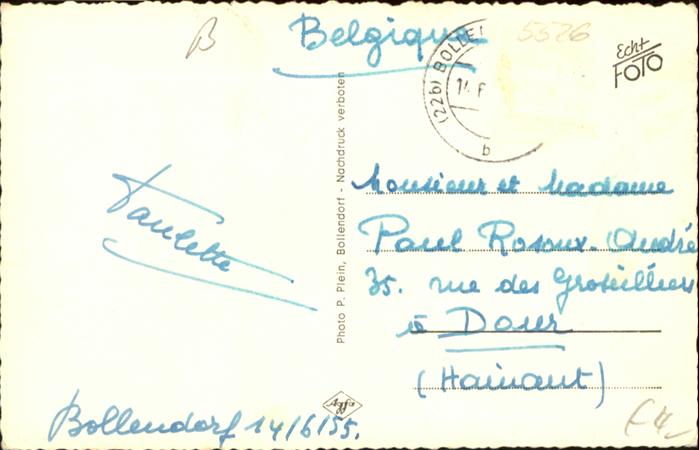 B
Belgique
5526
(22b) BOLLE
14.
b
Echt
FOTO
Monsieur et Madame
Paul Rosoux-André
35. rue des Groseilliers
à Dour
(Hainaut)
Paulette
Bollendorf 14/6/55.
Photo P. Plein, Bollendorf - Nachdruck verboten
Agfa